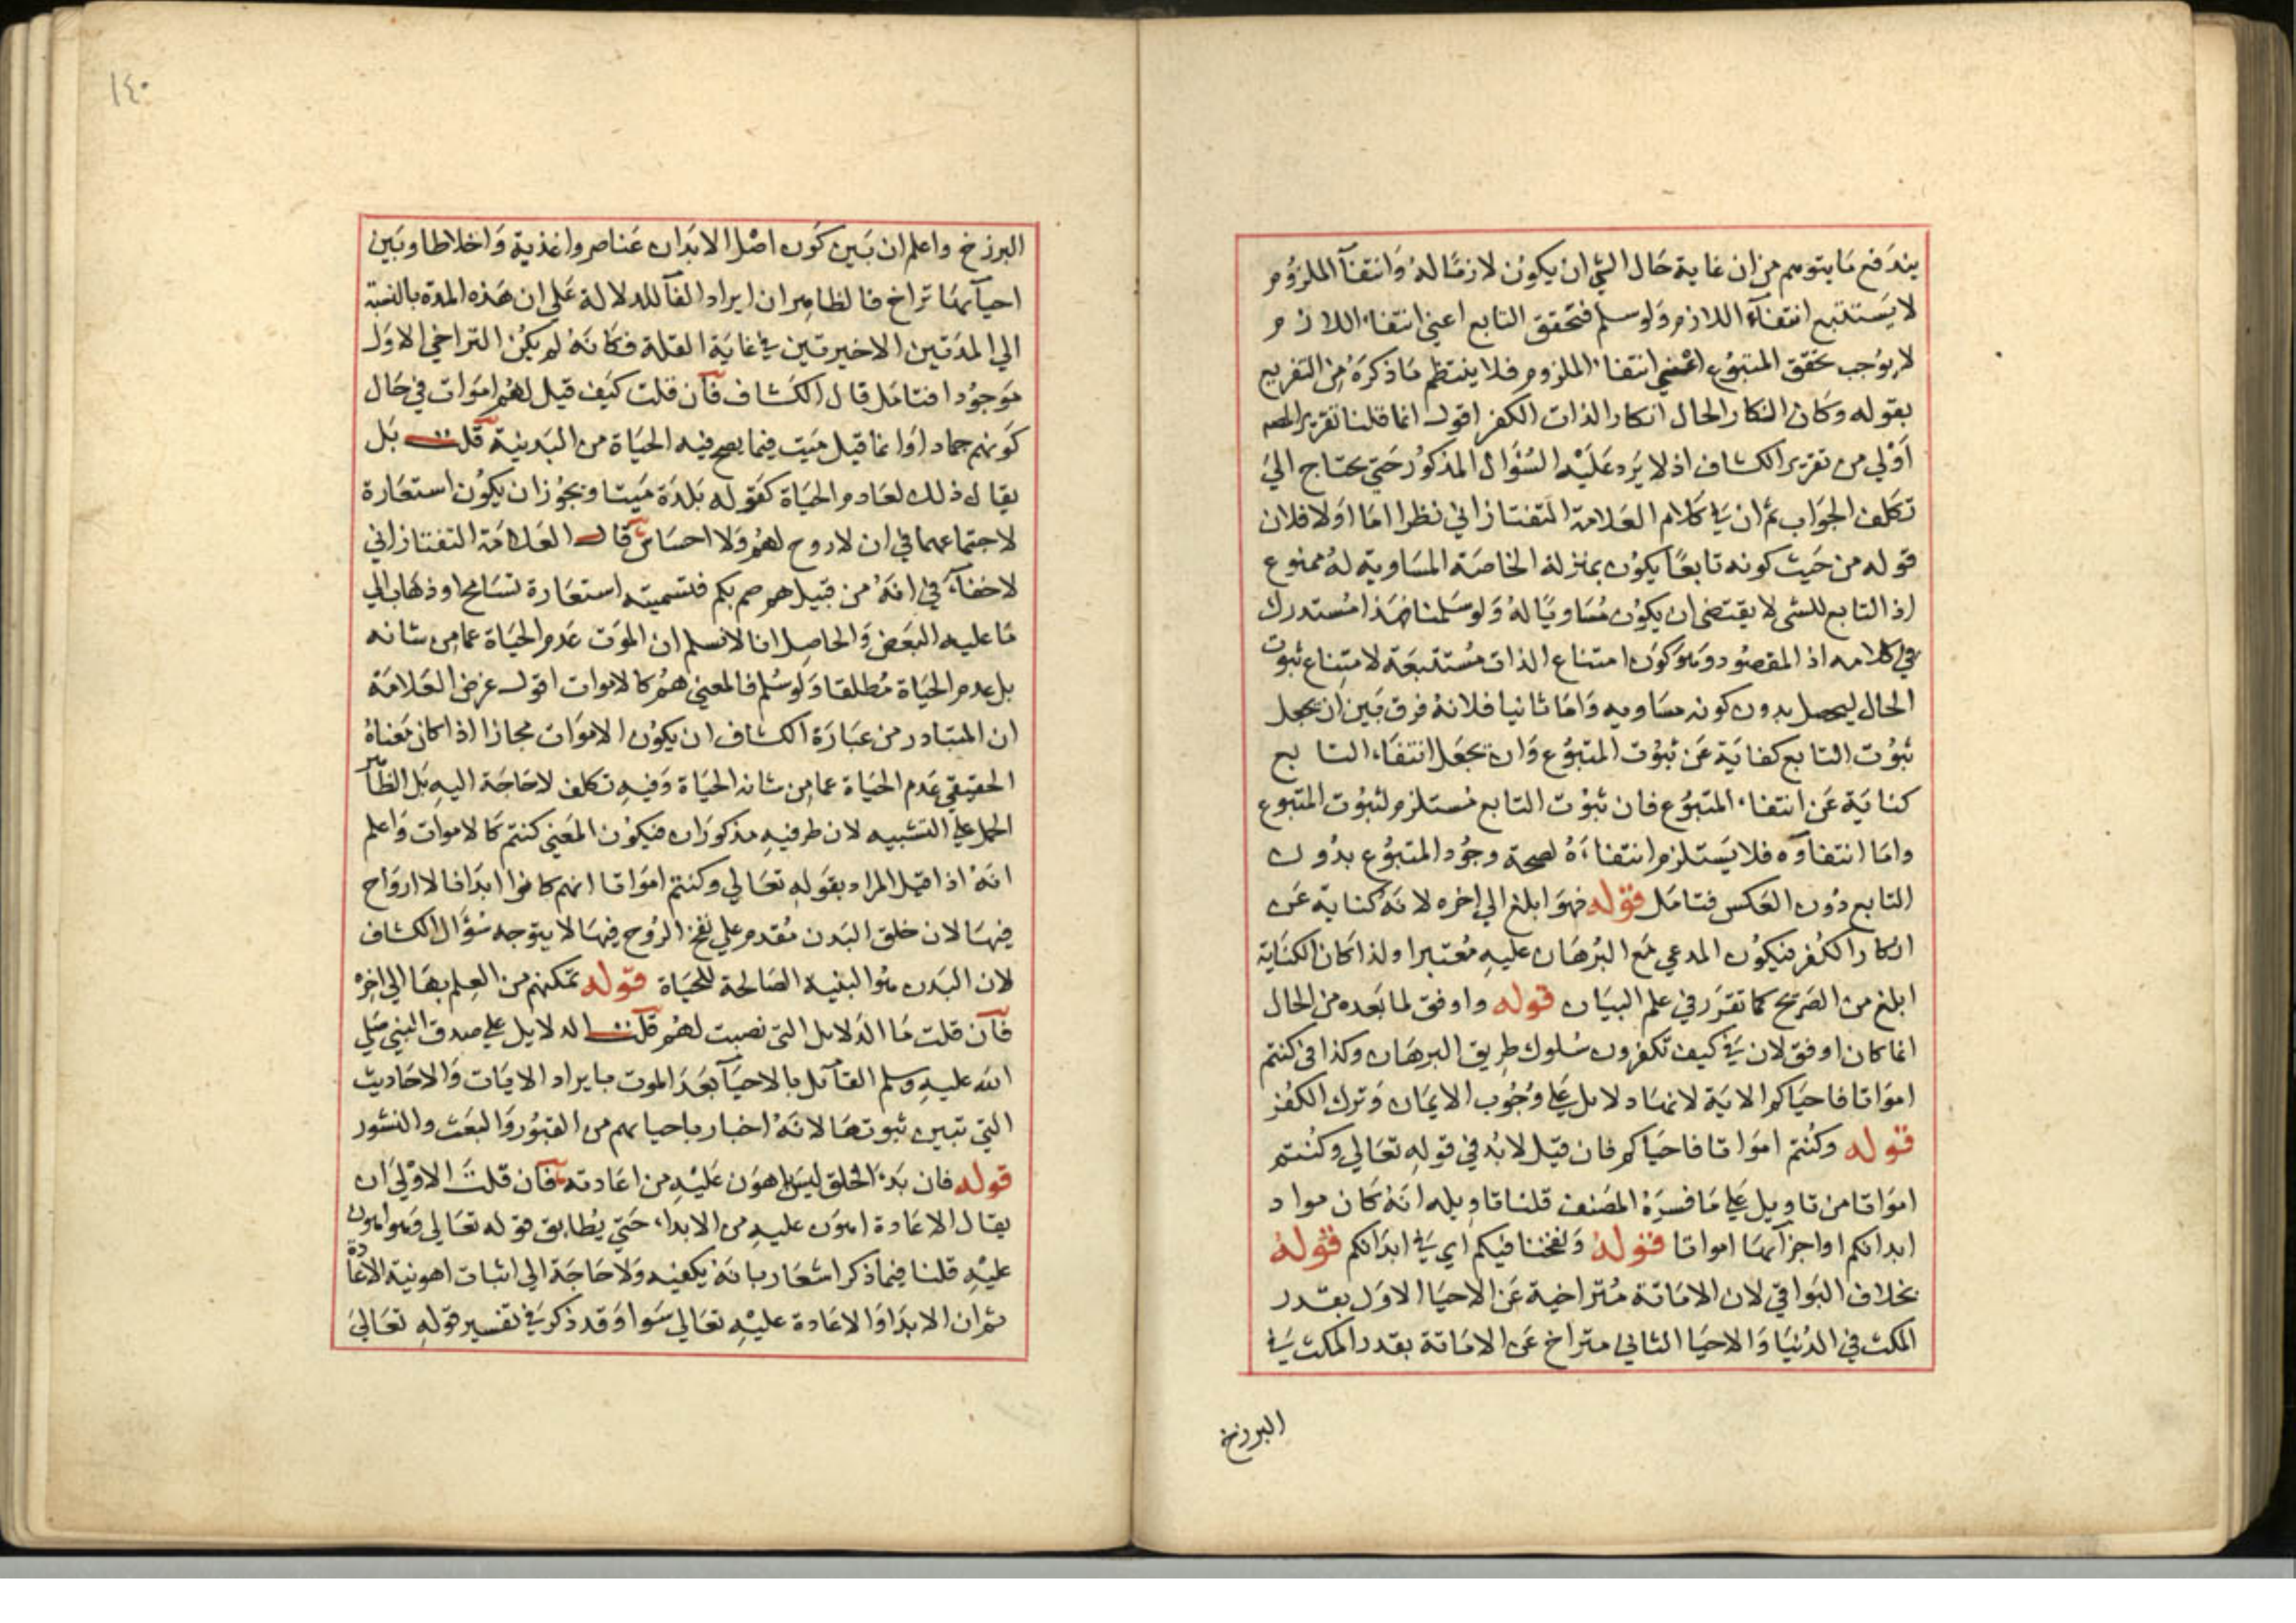 يندفع ما يتوهم من ان غاية حال الشي ان يكون لازما له وانتفآ الملزوم
لا يستتبع انتفآء اللازم ولو سلم فتحقق التابع اعني انتفاء اللازم
لا يوجب تحقق المتبوع اعني انتفاء الملزوم فلا ينتظم ما ذكره من التفريع
بقوله وكان انكار الحال انكار الذات الكفر اقول انما قلنا تقرير المص
اولي من تقرير الكشاف اذ لا يرد عليه السؤال المذكور حتي يحتاج الي
تكلف الجواب ثم ان في كلام العلامة التفتازاني نظرا اما اولا فلان
قوله من حيث كونه تابعا يكون بمنزلة الخاصة المساوية له ممنوع
اذ التابع للشي لا يقتضي ان يكون مساويا له ولو سلمنا فهذا مستدرك
في كلامه اذ المقصود وهو كون امتناع الذات مستتبعة لامتناع ثبوت
الحال ليحصل بدون كونه مساويه واما ثانيا فلانه فرق بين ان يجعل
ثبوت التابع كفاية عن ثبوت المتبوع وان تجعل انتفاء التابع
كناية عن انتفاء المتبوع فان ثبوت التابع مستلزم لثبوت المتبوع
واما انتفاوه فلا يستلزم انتفاءه لصحة وجود المتبوع بدون
التابع دون العكس فتامل قوله فهو ابلغ الي اخره لانه كناية عن
انكار الكفر فيكون المدعي مع البرهان عليه معتبرا ولذا كان الكناية
ابلغ من الصريح كما تقرر في علم البيان قوله واوفق لما بعده من الحال
انما كان اوفق لان في كيف تكفرون سلوك طريق البرهان وكذا في كنتم
امواتا فاحياكم الاية لانها دلايل علي وجوب الايمان وترك الكفر
قوله وكنتم امواتا فاحياكم فان قيل لا بد في قوله تعالي وكنتم
امواتا من تاويل علي ما فسره المصنف قلنا تاويله انه كان مواد
ابدانكم او اجزآئها امواتا قوله ونفخنا فيكم اي في ابدانكم قوله
بخلاف البواقي لان الاماتة متراخية عن الاحيا الاول بقدر
المكث في الدنيا والاحيا الثاني متراخ عن الاماتة بقدر المكث في
البرزخ
١٤٠
البرزخ واعلم ان بين كون اصل الابدان عناصر واغذية واخلاطا وبين
احيآئها تراخ فالظاهر ان ايراد الفآ للدلالة علي ان هذه المدة بالنسبة
الي المدتين الاخيرتين في غاية القلة فكانه لم يكن التراخي الاول
موجودا فتامل قال الكشاف فان قلت كيف قيل لهم اموات في حال
كونهم جمادا وانما قيل ميت فيما يصح فيه الحياة من البدنية قلت بل
يقال ذلك لعادم الحياة كقوله بلدة ميتا ويجوز ان يكون استعارة
لاجتماعهما في ان لا روح لهم ولا احساس قال العلامة التفتازاني
لا خفآء في انه من قبيل هم صم بكم فتسميته استعارة تسامح او ذهاب الي
ما عليه البعض والحاصل انا لا نسلم ان الموت عدم الحياة عما من شانه
بل عدم الحياة مطلقا ولو سلم فالمعني هم كالاموات اقول غرض العلامة
ان المتبادر من عبارة الكشاف ان يكون الاموات مجازا اذا كان معناه
الحقيقي عدم الحياة عما من شانه الحياة وفيه تكلف لا حاجة اليه بل الظاهر
الحمل علي التشبيه لان طرفيه مذكوران فيكون المعني كنتم كالاموات واعلم
انه اذا قيل المراد بقوله تعالي وكنتم امواتا انهم كانوا ابدانا لا ارواح
فيها لان خلق البدن مقدم علي نفخ الروح فيها لا يتوجه سؤال الكشاف
لان البدن هو البنية الصالحة للحياة قوله تمكنهم من العلم بها الي اخره
فان قلت ما الدلايل التي نصبت لهم قلت الدلايل علي صدق النبي صلي
الله عليه وسلم القآئل بالاحيآ بعد الموت بايراد الايات والاحاديث
التي تبين ثبوتها لانه اخبار باحيائهم من القبور والبعث والنشور
قوله فان بدء الخلق ليس باهون عليه من اعادته فان قلت الاولي ان
يقال الاعادة اهون عليه من الابداء حتي يطابق قوله تعالي وهو اهون
عليه قلنا فيما ذكر اشعار بانه يكفيه ولا حاجة الي اثبات اهونية الاعادة
ثم ان الابدا والاعادة عليه تعالي سوا وقد ذكر في تفسير قوله تعالي